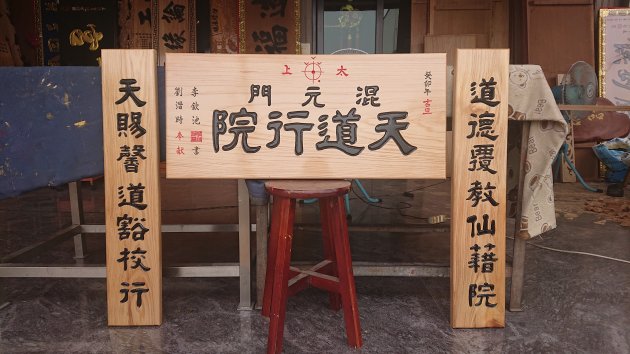 道德覆教仙藉院
癸卯年 吉旦
太上
混元門
天道行院
李欽池 書
劉潛時 奉献
天賜馨道豁校行